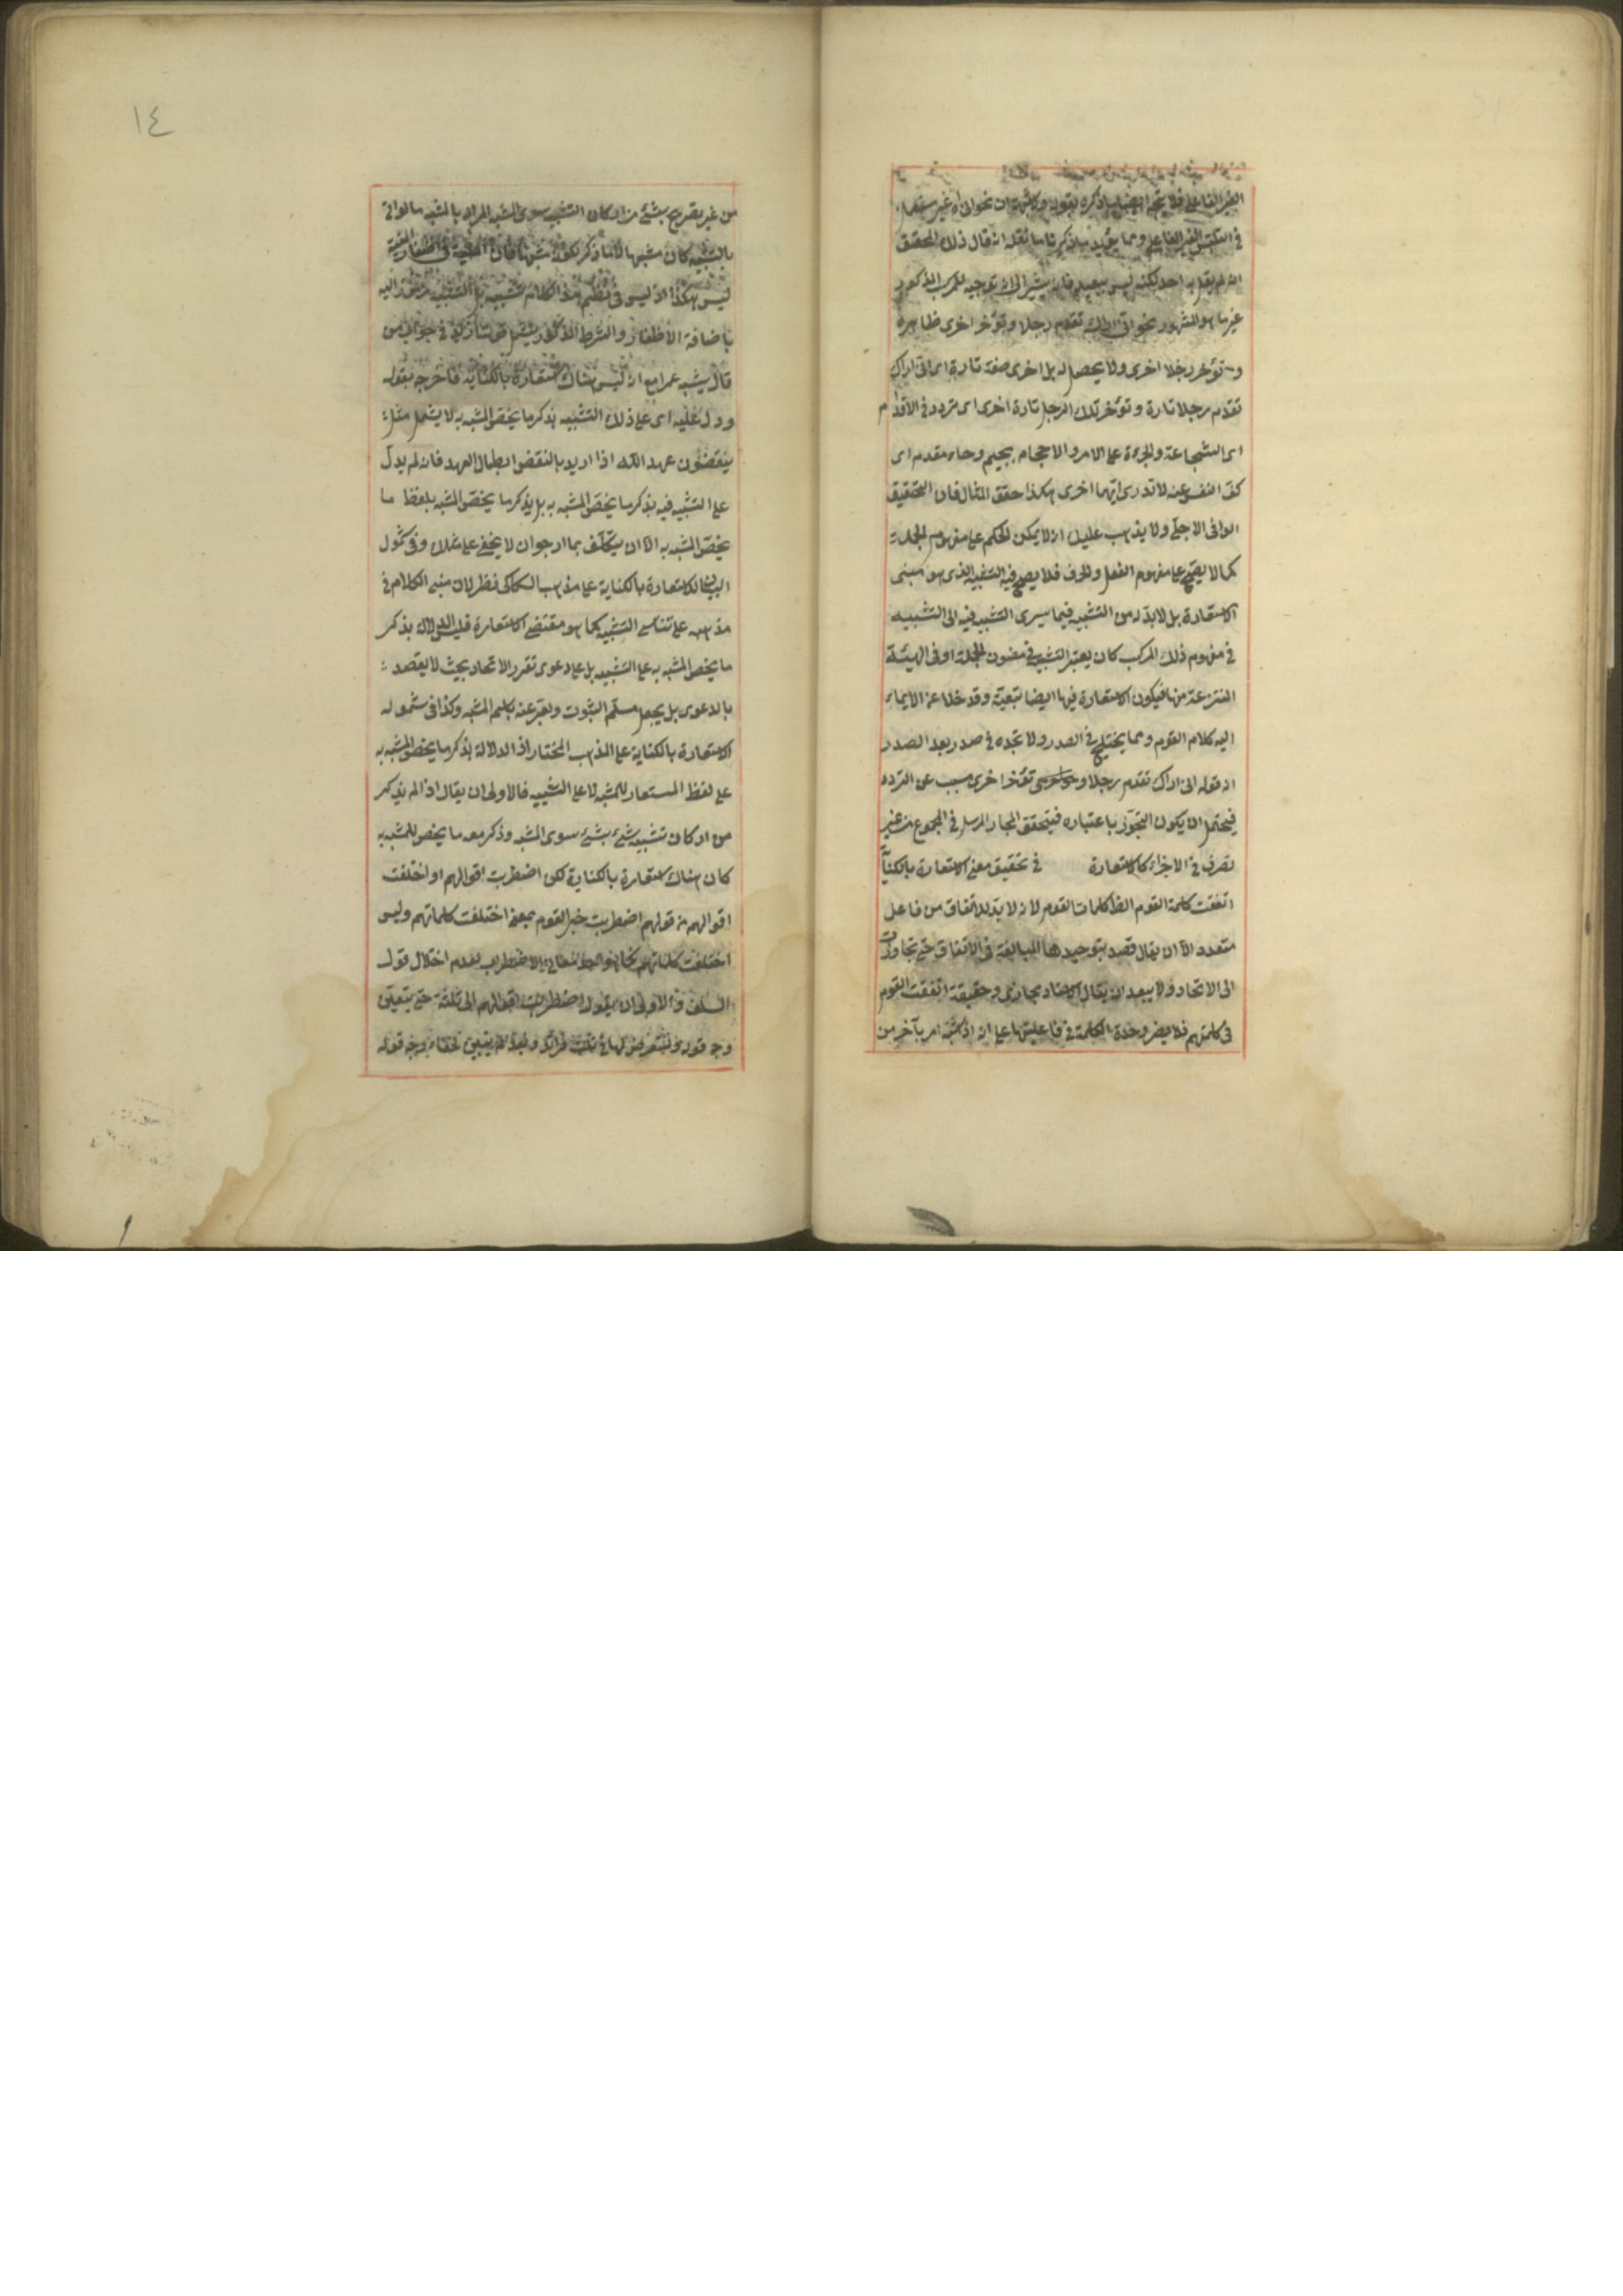 الغير الفاعلي فلا يتجه ايضا ما ذكره بقوله وكثيرا ان نحو اني اراك غير مستعمل
في التلبس الغير الفاعلي ومما يؤيد ما ذكرنا ما نقله انه قال ذلك المحقق
انه لم يقل به احد لكنه ليس ببعيد فانه يشير الى انه توجيه للمركب المذكور
غير ما هو المشهور نحو اني اراك تقدم رجلا وتؤخر اخرى ظاهره
وتؤخر رجلا اخرى ولا يحصل له بل اخرى صفة تارة اى اني اراك
تقدم رجلا تارة وتؤخر تلك الرجل تارة اخرى اى تردد في الاقدام
اى الشجاعة والجرءة على الامر والاحجام بجيم وحاء مقدم اى
كف النفس عنه لا تدرى ايهما اخرى هكذا حقق المثال فان التحقيق
الوافي الاجلّ ولا يذهب عليك انه لا يمكن الحكم على مفهوم الجملة
كما لا يصح على مفهوم الفعل والحرف فلا يصح فيه التشبيه الذى هو مبنى
الاستعارة بل لا بد له من التشبيه فيما سيرى التشبيه فيه الى التشبيه
في مفهوم ذلك المركب كان يعتبر التشبيه في مضمون الجملة او في الهيئة
المنتزعة منها فيكون الاستعارة فيها ايضا تبعية وقد خلا عن الايماء
اليه كلام القوم ومما يختلج في الصدر ولا تجده في صدر بعد الصدر
ان قوله اني اراك تقدم رجلا وتؤخر اخرى مسبب عن التردد
فيحتمل ان يكون التجوز باعتباره فيتحقق المجاز المرسل في المجموع من غير
تصرف في الاجزاء كالاستعارة في تحقيق معنى الاستعارة بالكناية
اتفقت كلمة القوم الظ كلمات القوم لانه لا بد للاتفاق من فاعل
متعدد الا ان يقال قصد بتوحيدها المبالغة في الاتفاق حتى تجاوزت
الى الاتحاد ولا يبعد ان يقال الاسناد مجازي وحقيقة اتفقت القوم
في كلمتهم فلا يضر وحدة الكلمة في فاعليتها على انه اذا شبه امر بآخر من
١٤
من غير تصريح بشئ من اركان التشبيه سوى المشبه المراد بالمشبه ما لو اتى
بالتشبيه كان مشبها
ليس هكذا اذ ليس في نظم هذا الكلام تشبيه بل التشبيه مرموز اليه
باضافة الاظفار والشرط المذكور يشمل قولنا زيد في جواب من
قال يشبه عمرا مع انه ليس هناك استعارة بالكناية فاخرجه بقوله
ودل عليه اى على ذلك التشبيه بذكر ما يخص المشبه به لا يشمل مثل
ينقضون عهد الله اذا اريد بالنقض ابطال العهد فانه لم يدل
على التشبيه فيه بذكر ما يخص المشبه به بل بذكر ما يخص المشبه بلفظ ما
يخص المشبه به الا ان يتكلف بما ارجو ان لا يخفى على مثلك وفي شمول
البيان للاستعارة بالكناية على مذهب السكاكى نظر لان مبنى الكلام في
مذهبه على تناسى التشبيه كما هو مقتضى الاستعارة فليس الدلالة بذكر
ما يخص المشبه به على التشبيه بل على دعوى تقرر الاتحاد بحيث لا يقصد
بالدعوى بل يجعل مسلم الثبوت ويعبر عنه باسم المشبه وكذا في شموله
الاستعارة بالكناية على المذهب المختار اذ الدلالة بذكر ما يخص المشبه به
على لفظ المستعار للمشبه لا على التشبيه فالاولى ان يقال اذا لم يذكر
من اركان تشبيه شئ بشئ سوى المشبه وذكر معه ما يخص المشبه به
كان هناك استعارة بالكناية لكن اضطربت اقوالهم او اختلفت
اقوالهم من قولهم اضطربت خير القوم بمعنى اختلفت كلماتهم وليس
اختلفت كلماتهم الاضطراب بعدم اختلال قول
السلف والاولى ان يقول اضطربت اقوالهم الى ثلثة حتى يتعين
وجه قوله ولنتعرض لها في ثلث فرائد وجه قوله